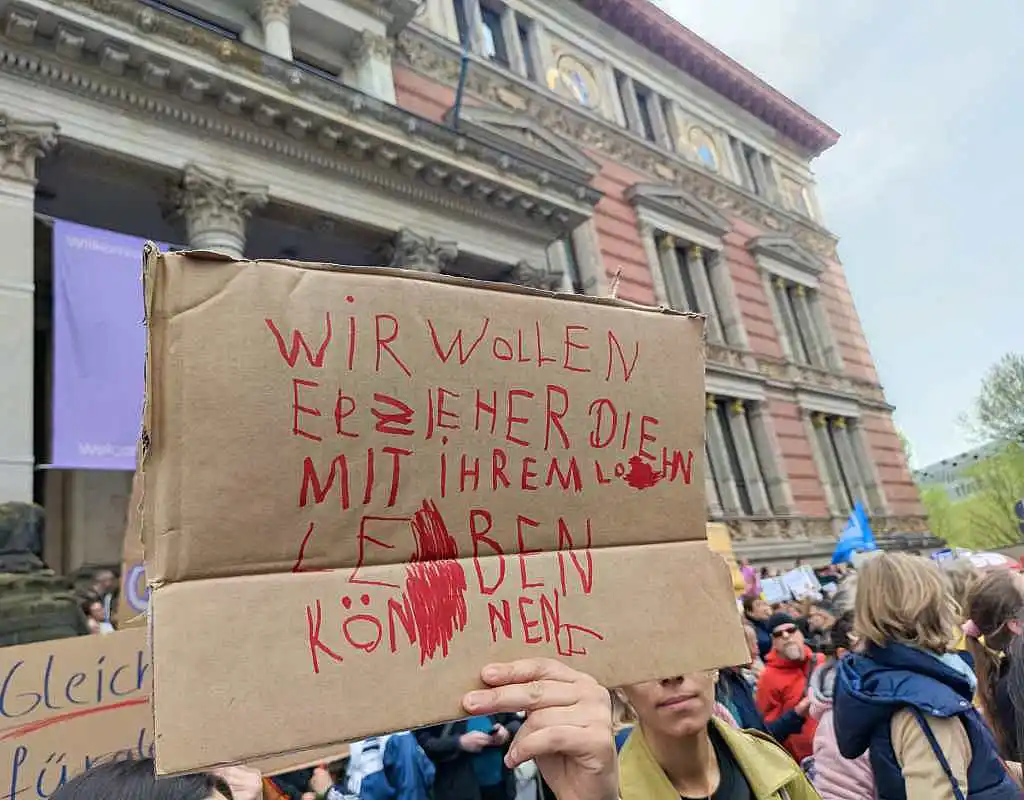 WiR WoLLEN
ERZIEHER DIE
MIT iHREM LOHN
LEBEN
KÖNNEN
Gleich
für